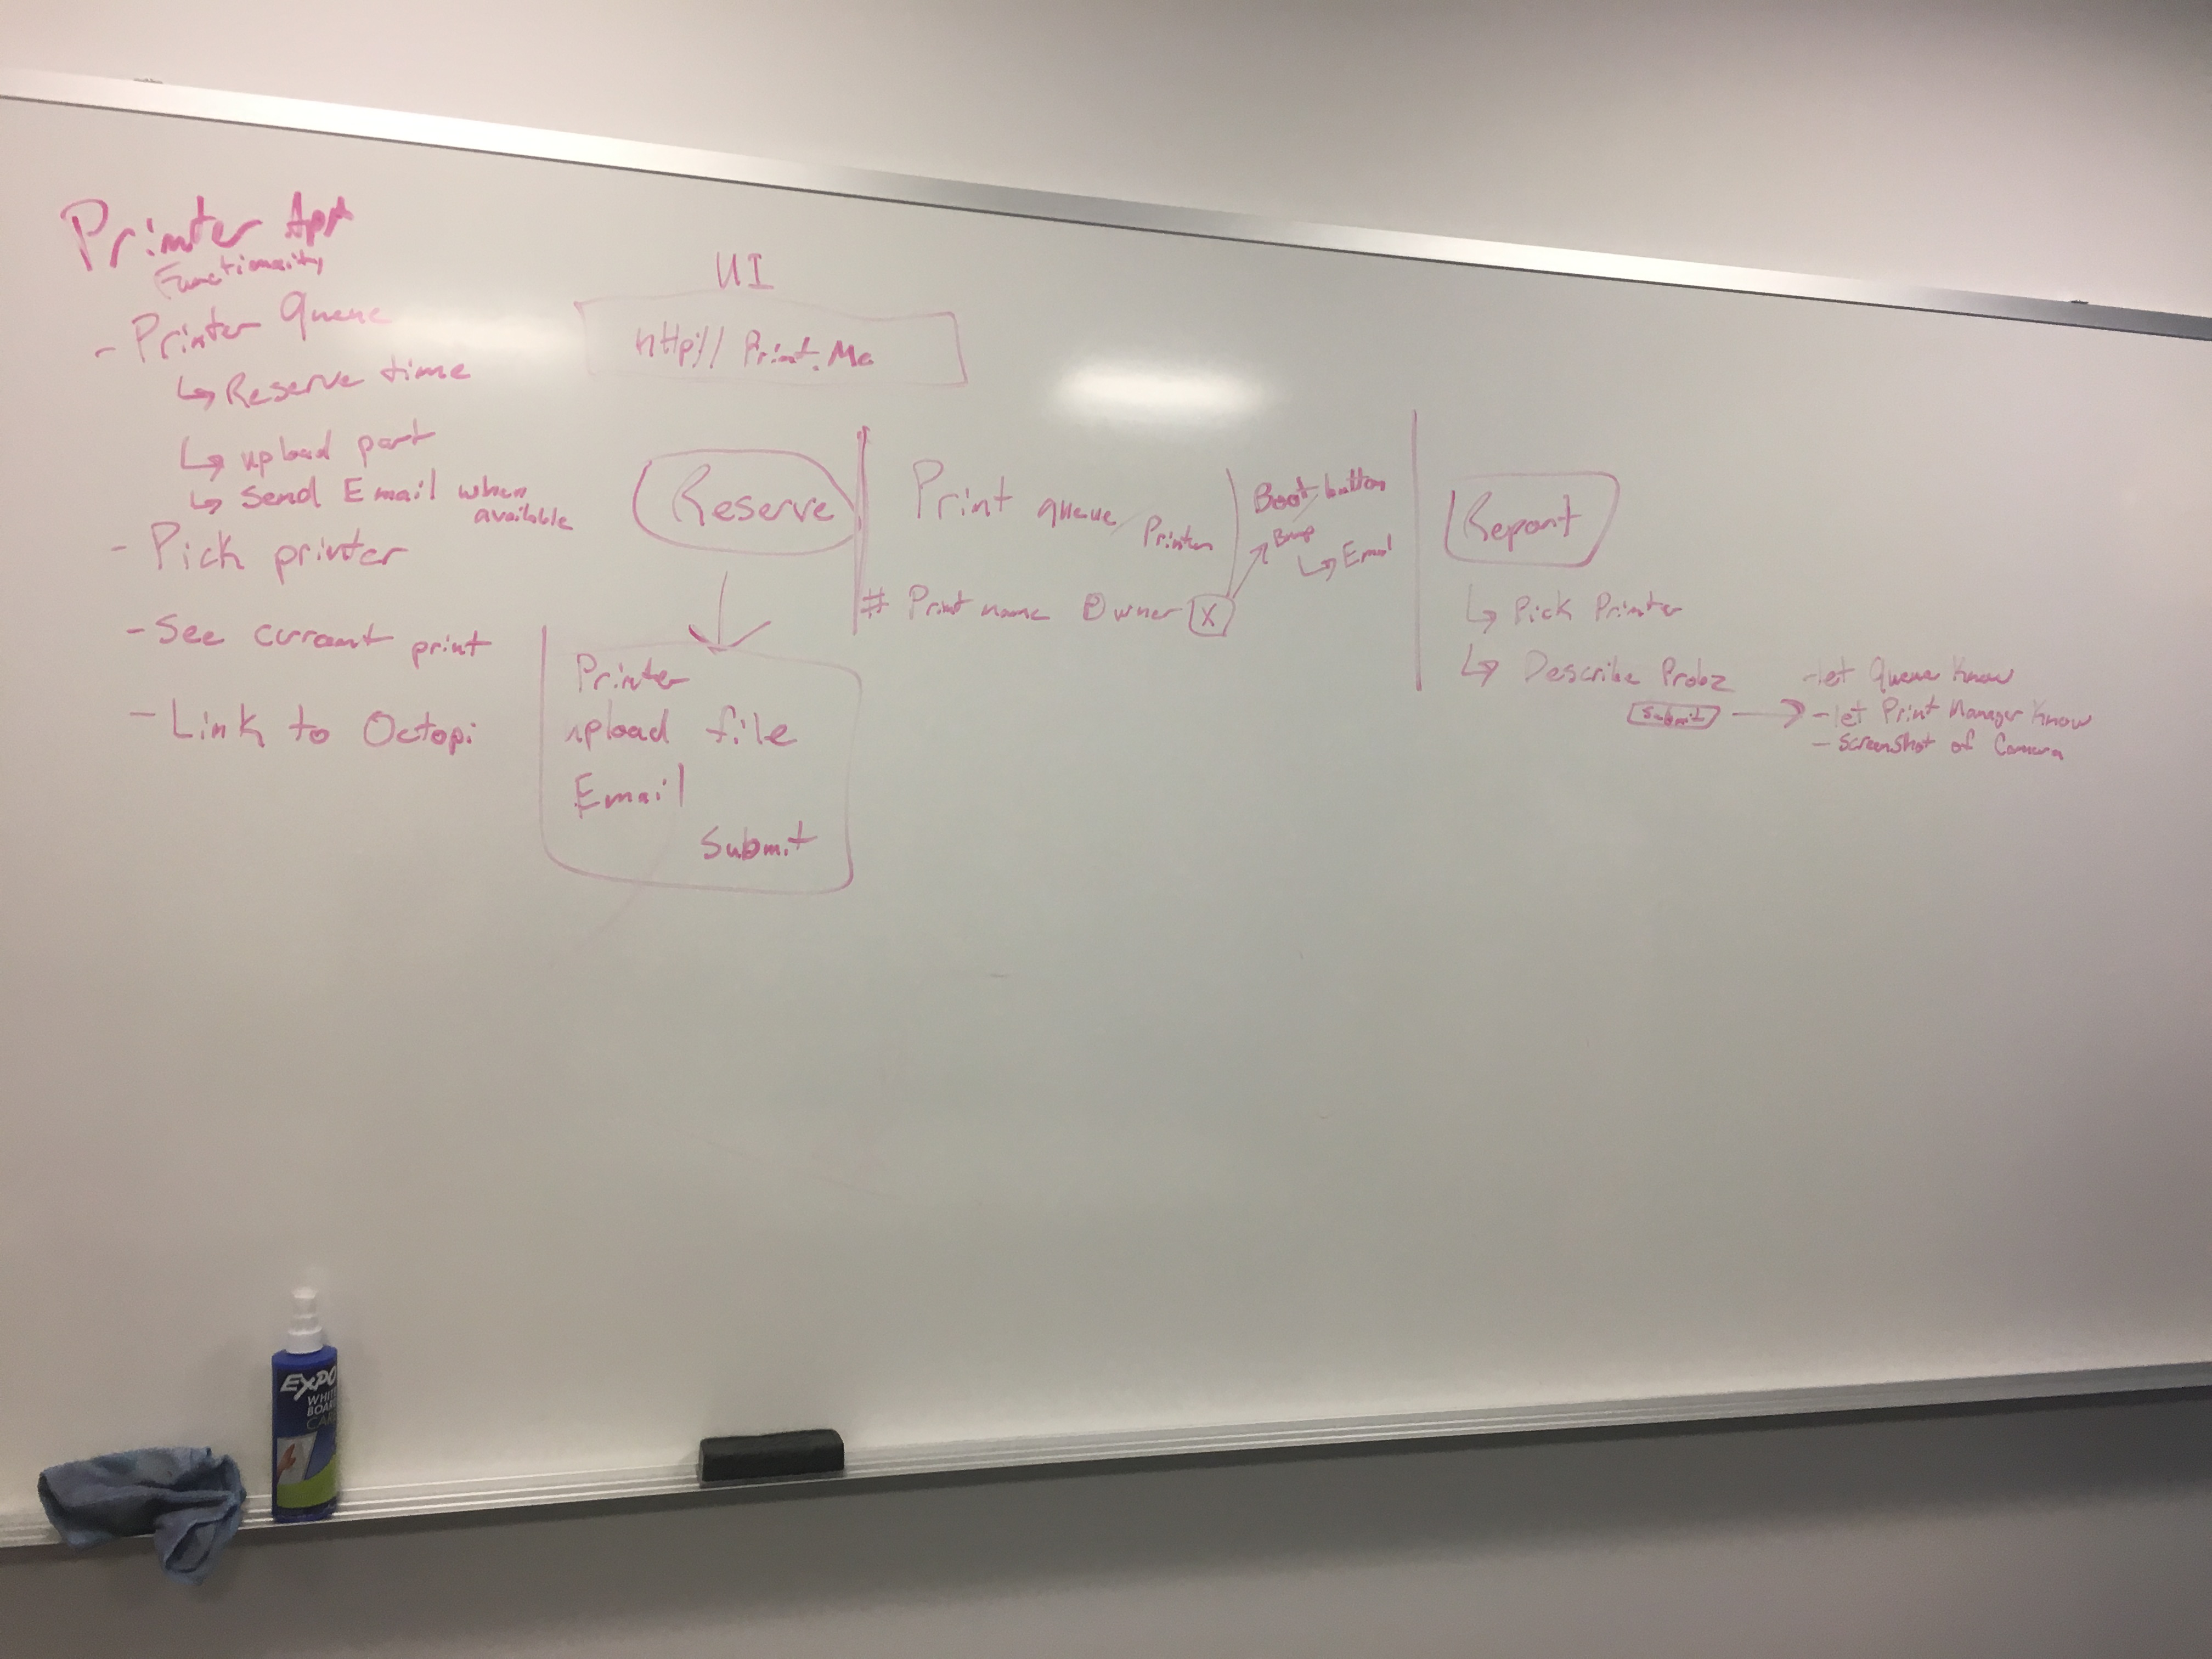 Printer App
Functionality
- Printer Queue
↳ Reserve time
↳ upload part
↳ Send Email when available
- Pick printer
- See current print
- Link to Octopi
UI
http:// Print.Me
Reserve
Printer
upload file
Email
Submit
Print queue / Printer
# Print name Owner X
Boot button
Bump
↳ Email
Report
↳ Pick Printer
↳ Describe Probz
Submit
- let Queue Know
- let Print Manager Know
- Screenshot of Camera
EXPO
WHITE
BOARD
CARE